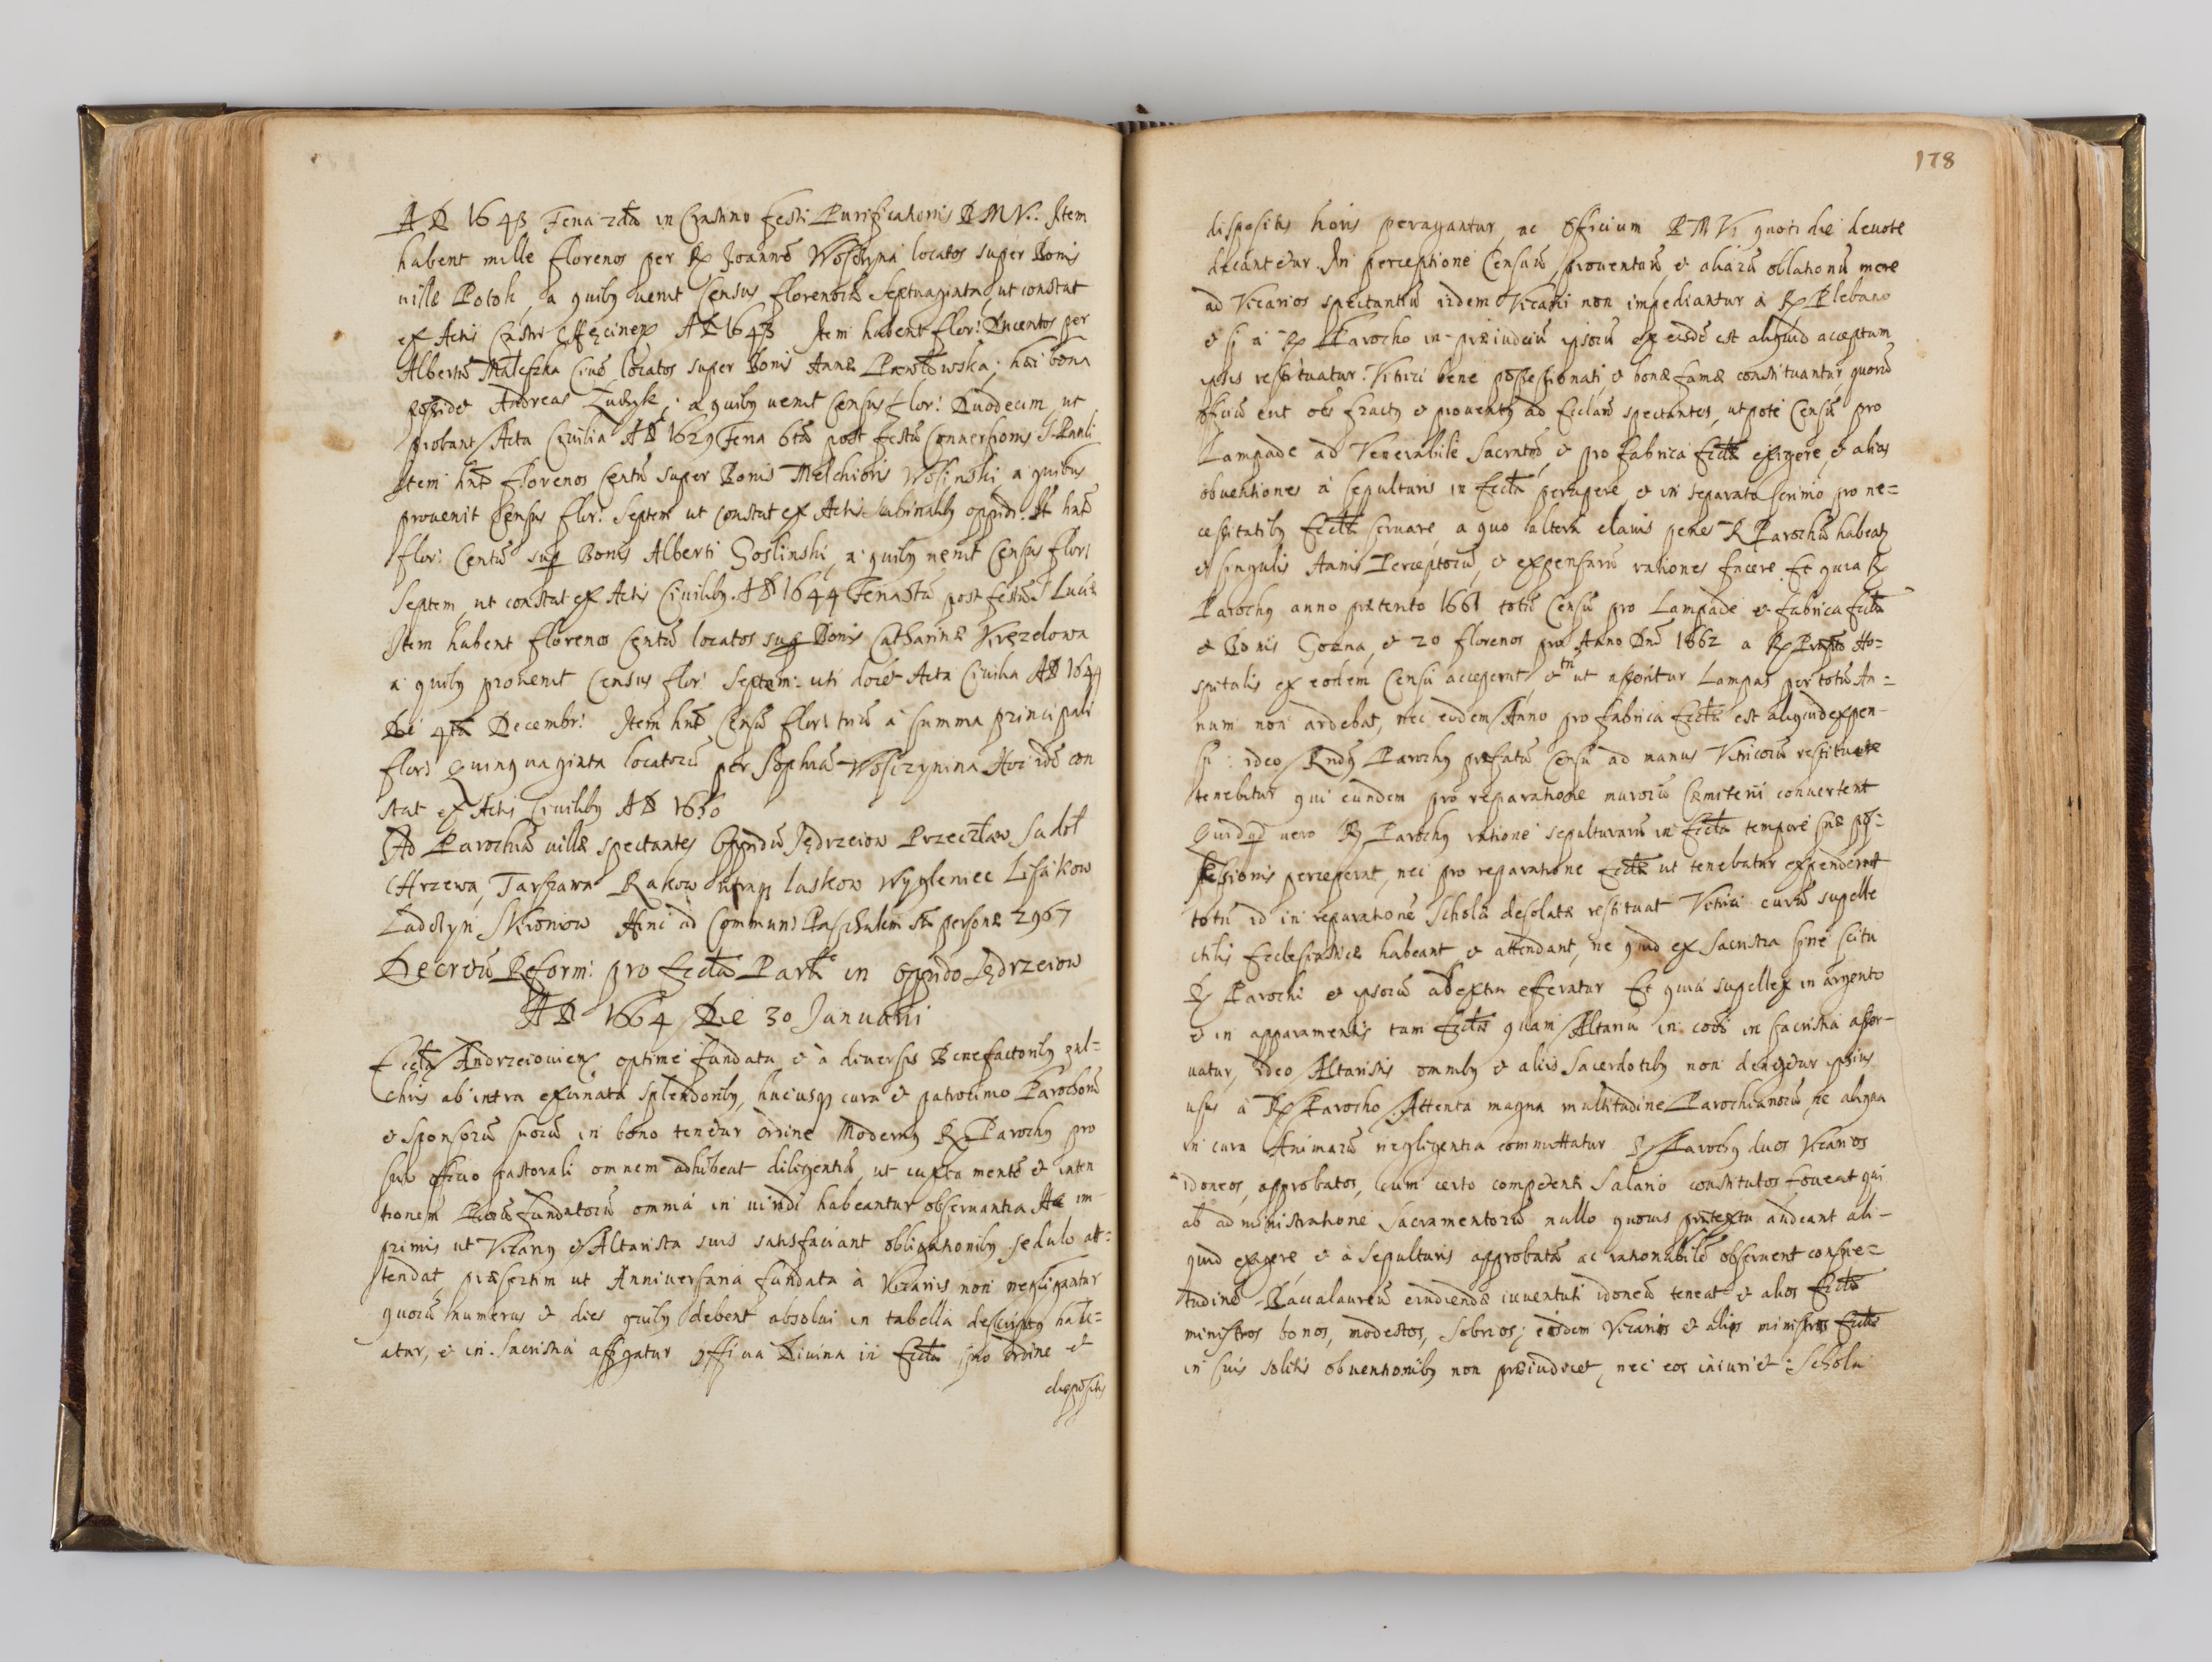 A D 1643 Feria 2da in Crastino festi Purificationis B M V. Item
habent mille florenos per R Joannē locatos super Bonis
villæ Potok, a quibȝ venit Census florenorū Septuaginta ut constat
ex Actis Castri A D 1643 Item habent flor: Ducentos per
Albertū Maleszka Civē locatos super Bonis Annæ hæc bona
possidet Andreas a quibȝ venit Census flor: Duodecim, ut
probant Acta Civilia A D 1629 Feria 6ta post festū Conversionis S. Pauli
Item hnt florenos Centū super Bonis Melchioris Wosinski, a quibus
provenit Census flor: Septem ut constat ex Actis oppidi. It hnt
flor: Centū sup Bonis Alberti Goslinski, a quibȝ venit Census flor:
Septem, ut constat ex Actis Civilibȝ A D 1644 Feria 3tia post festū S Luciæ
Item habent florenos Centū locatos sup Bonis Catharinæ
a quibȝ provenit Census flor: Septem: uti docet Acta Civilia A D 1644
Die 4ta Decembr: Item hnt Censū flor: triū à summa principali
flor: Quinquaginta locatorū per Sophiā Wosczynina Hoc idē con
stat ex Actis Civilibȝ A D 1650
Ad Parochiā villæ spectantes Oppidū Jędrzeiow Przecław Sudoł
Chrzewa, Tarszawa Rakow utraqȝ Laskow Wygleniec Lisakow
Ladszyn Skroniow Hinc ad Commun: Paschalem sū personæ 2967
Decretū Reform: pro Eccla Parhc in Oppido Jędrzeiow
A D 1664 Die 30 Januarii
Eccla Andrzeiovien optime fundata et à diversis Benefactoribȝ pul=
chris ab intra exornata splendoribȝ, hucusqȝ cura et patrocinio Parochorū
et Sponsorū suorū in bono tenetur ordine Modernȝ R Parochȝ pro
suo officio pastorali omnem adhibeat diligentiā, ut iuxta mentē et inten
tionem Piorū fundatorū omnia in viridi habeantur observantia Ac im-
primis ut Vicarȝ et Altarista suis satisfaciant obligationibȝ sedulo at=
tendat, præsertim ut Anniversaria fundata à Vicariis non negligantur
quorū numerus et dies quibȝ debent absolvi in tabella descriptȝ habe=
atur, et in Sacristia affigatur Officia Divina in Eccla suo ordine et
dispositis
178
dispositis horis peragantur, ac Officium B M V. quotidie devote
decantetur. In perceptione Censuū, proventuū, et aliarū oblationū mere
ad Vicarios spectantiū iidem Vicarii non impediantur à R Plebano
et si à R Parocho in præiudiciū ipsorū ex eisdē est aliquid acceptum
ipsis restituatur. Vitrici bene possessionati, et bonæ famæ constituantur, quorū
officiū erit oēs fructȝ et proventȝ ad Ecclam spectantes, utpote Censū pro
Lampade ad Venerabile Sacrntō, et pro fabrica Ecclæ exigere, et alias
obventiones à Sepulturis in Eccla percipere, et in separato scrinio pro ne=
cessitatibȝ Ecclæ servare, a quo altera clavis penes R Parochū habeatȝ
et singulis Annis Perceptorū, et expensarū rationes facere. Et quia R
Parochȝ anno prætento 1661 totū Censū pro Lampade et fabrica Ecclæ
e Bonis et 20 florenos pro Anno Dni 1662 a R Ho=
spitalis ex eodem Censu acceperat, et tn ut asseritur Lampas per totū An=
num non ardebat, nec eodem Anno pro fabrica Ecclæ est aliquid expen-
sū: ideo Rndȝ Parochȝ præfatū Censū ad manus Vitricorū restituere
tenebitur qui eundem pro reparatione murorū Cæmiterii convertent
Quidqd vero R Parochȝ ratione sepulturarū in Eccla tempore suæ pos=
sessionis perceperat, nec pro reparatione Ecclæ ut tenebatur expenderat
totū id in reparationē Scholæ desolatæ restituat Vitrici curā supelle
ctilis Ecclesiasticæ habeant, et attendant, ne quid ex Sacristia sine scitu
R Parochi et ipsorū ad extra efferatur Et quia supellex in argento
et in apparamentis tam Ecclæ quam Altariū in coōi in sacristia asser-
vatur, ideo Altaristis omnibȝ et aliis Sacerdotibȝ non denegetur ipsius
usus à R Parocho. Attenta magna multitudine Parochianorū, ne aliqua
in cura Animarū negligentia committatur R Parochȝ duos Vicarios
idoneos, approbatos, cum certo competenti Salario constitutos foveat qui
ab administratione Sacramentorū nullo quovis prætextu audeant ali-
quid exigere et à Sepulturis approbatā ac rationabilē observent consue=
tudinē Baccalaureū erudiendæ iuventuti idoneū teneat et alios Ecclæ
ministros bonos, modestos, sobrios; eosdem Vicarios et alios ministros Ecclæ
in suis solitis obventionibȝ non præiudicet, nec eos iniuriet: Schola